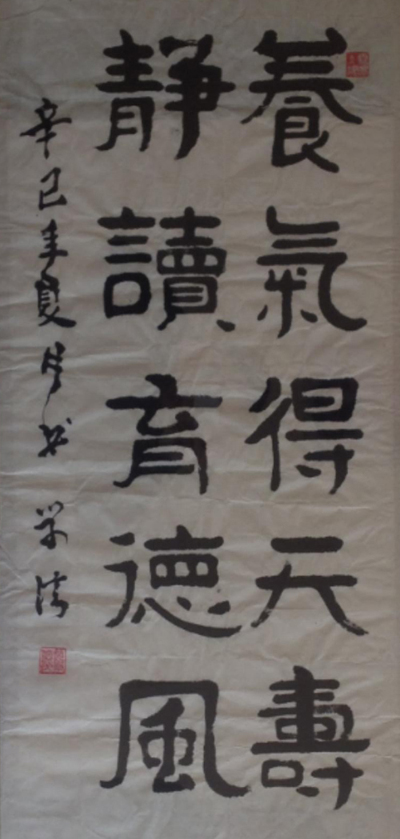 養氣得天壽
靜讀育德風
辛巳年夏月书